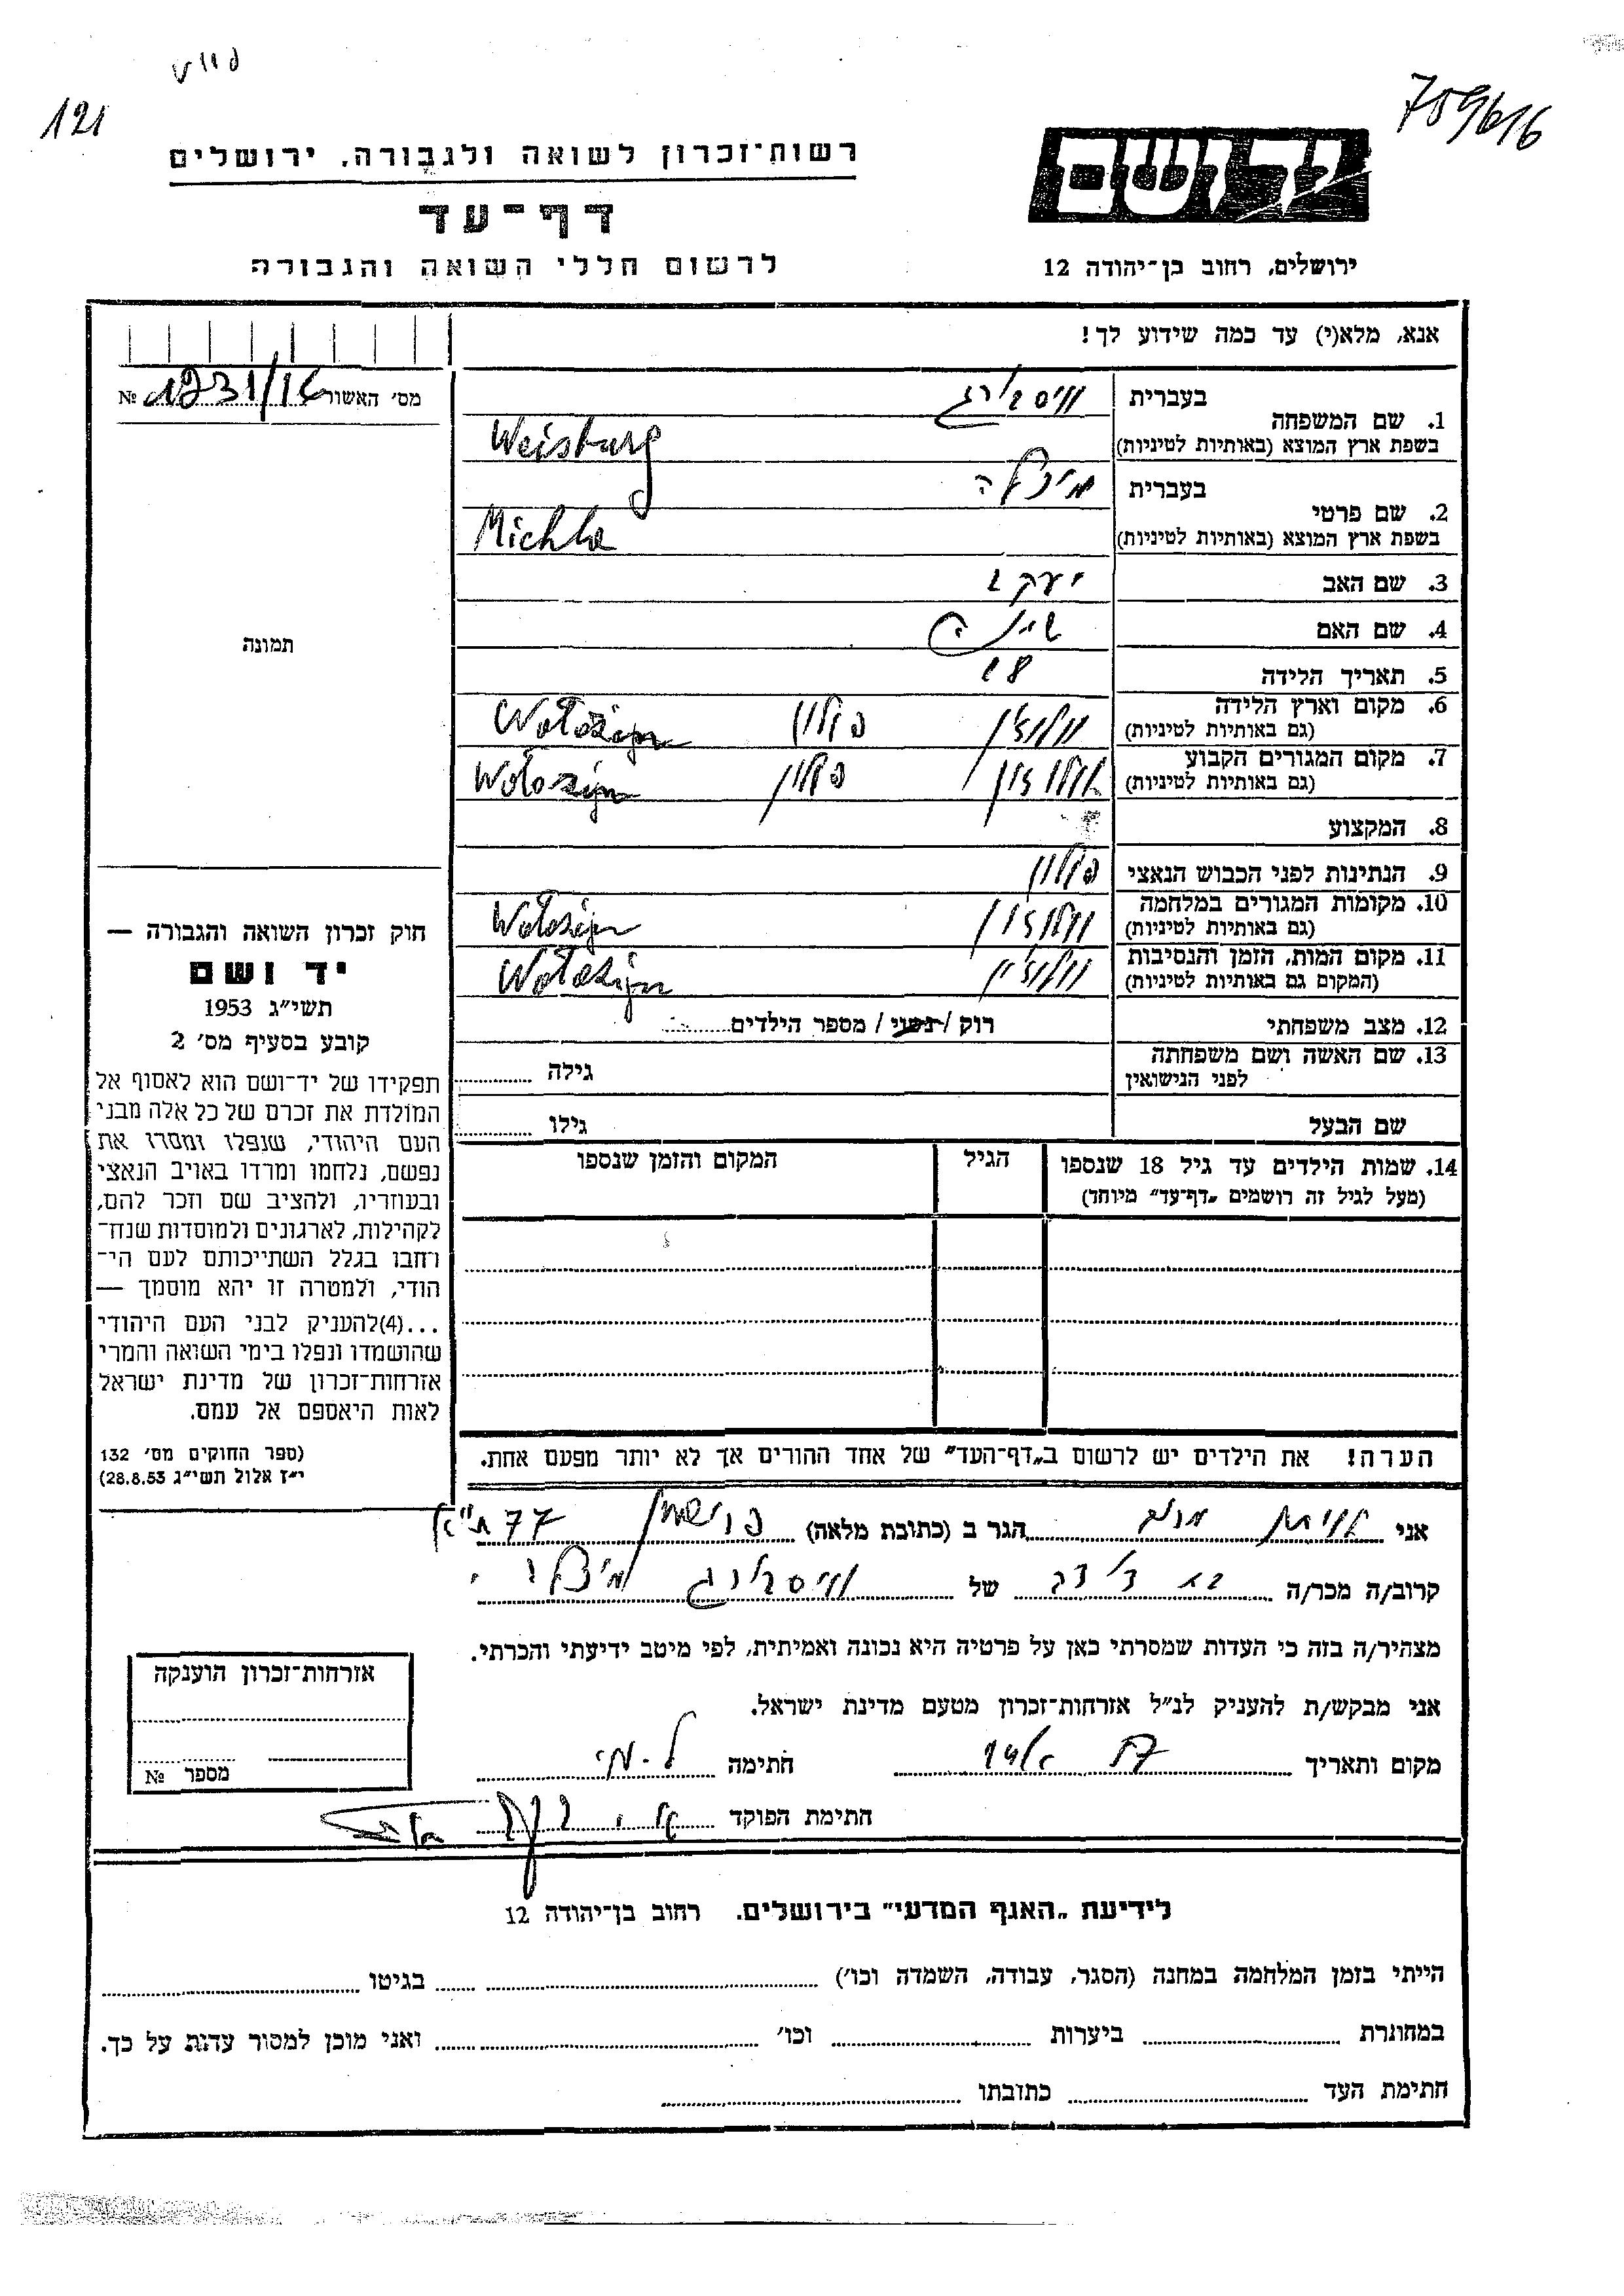 121
709616
רשות־זכרון לשואה ולגבורה. ירושלים
דף־עד
לרשום חללי השואה והגבורה
יד ושם
ירושלים, רחוב בן־יהודה 12
אנא, מלא(י) עד כמה שידוע לך!
מס׳ האשור № 1231/16
1. שם המשפחה
בעברית וויסבורג
בשפת ארץ המוצא (באותיות לטיניות) Weisburg
2. שם פרטי
בעברית מיכלה
בשפת ארץ המוצא (באותיות לטיניות) Michla
3. שם האב יעקב
4. שם האם
5. תאריך הלידה 18
6. מקום וארץ הלידה וולוז'ין פולין Wołożyn
(גם באותיות לטיניות)
7. מקום המגורים הקבוע וולוז'ין פולין Wołożyn
(גם באותיות לטיניות)
8. המקצוע
9. הנתינות לפני הכבוש הנאצי פולין
10. מקומות המגורים במלחמה וולוז'ין Wołożyn
(גם באותיות לטיניות)
11. מקום המות, הזמן והנסיבות וולוז'ין Wołożyn
(המקום גם באותיות לטיניות)
12. מצב משפחתי רוק / נשוי / מספר הילדים
13. שם האשה ושם משפחתה
לפני הנישואין גילה
שם הבעל גילו
14. שמות הילדים עד גיל 18 שנספו הגיל המקום והזמן שנספו
(מעל לגיל זה רושמים „דף־עד״ מיוחד)
הערה! את הילדים יש לרשום ב„דף־העד״ של אחד ההורים אך לא יותר מפעם אחת.
תמונה
חוק זכרון השואה והגבורה —
יד ושם
תשי״ג 1953
קובע בסעיף מס׳ 2
תפקידו של יד־ושם הוא לאסוף אל
המולדת את זכרם של כל אלה מבני
העם היהודי, שנפלו ומסרו את
נפשם, נלחמו ומרדו באויב הנאצי
ובעוזריו, ולהציב שם וזכר להם,
לקהילות, לארגונים ולמוסדות שנח־
רחבו בגלל השתייכותם לעם הי־
הודי, ולמטרה זו יהא מוסמך —
...(4)להעניק לבני העם היהודי
שהושמדו ונפלו בימי השואה והמרי
אזרחות־זכרון של מדינת ישראל
לאות היאספם אל עמם.
(ספר החוקים מס׳ 132
י״ז אלול תשי״ג 28.8.53)
אני הגר ב (כתובת מלאה) 77 ת"א
קרוב/ה מכר/ה בת דוד של וויסבורג מיכלה
מצהיר/ה בזה כי העדות שמסרתי כאן על פרטיה היא נכונה ואמיתית, לפי מיטב ידיעתי והכרתי.
אני מבקש/ת להעניק לנ״ל אזרחות־זכרון מטעם מדינת ישראל.
מקום ותאריך חתימה
חתימת הפוקד
אזרחות־זכרון הוענקה
מספר №
לידיעת „האגף המדעי״ בירושלים. רחוב בן־יהודה 12
הייתי בזמן המלחמה במחנה (הסגר, עבודה, השמדה וכו׳) בגיטו
במחתרת ביערות וכו׳ ואני מוכן למסור עדות על כך.
חתימת העד כתובתו